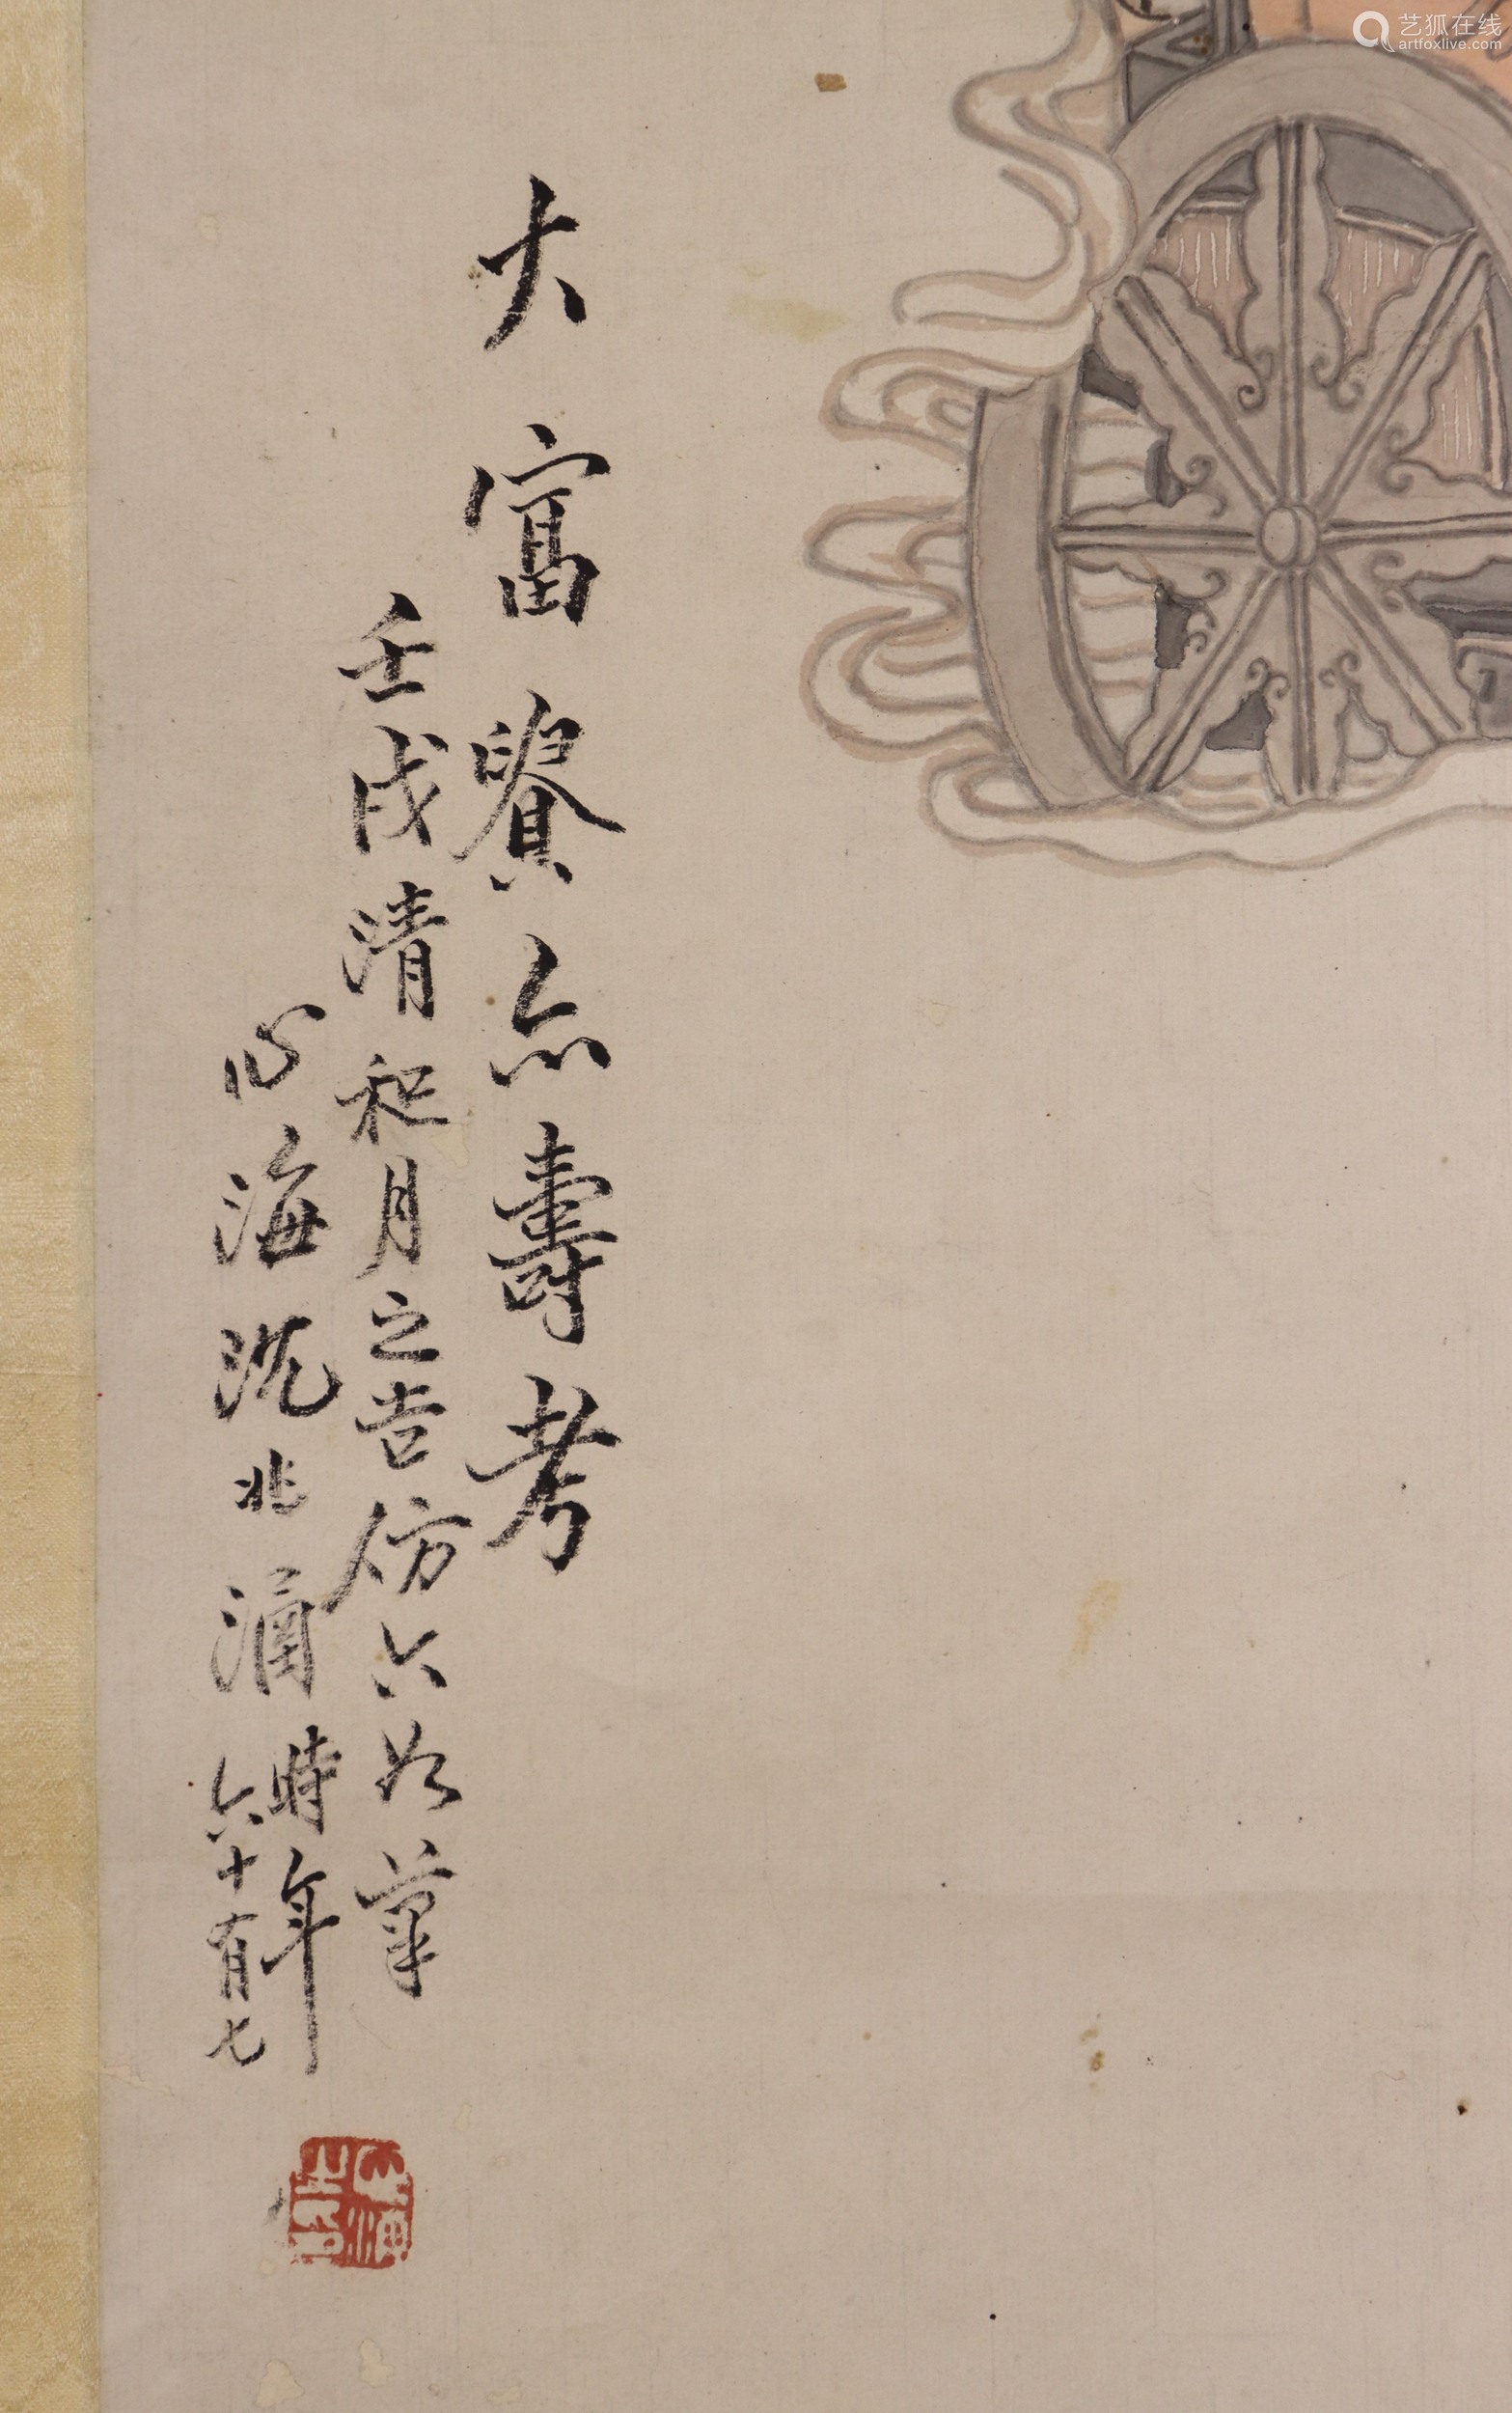 大富貴亦壽考
壬戌清和月之吉仿六如筆
心海沈兆涵時年
六十有七
艺狐在线
artfoxlive.com